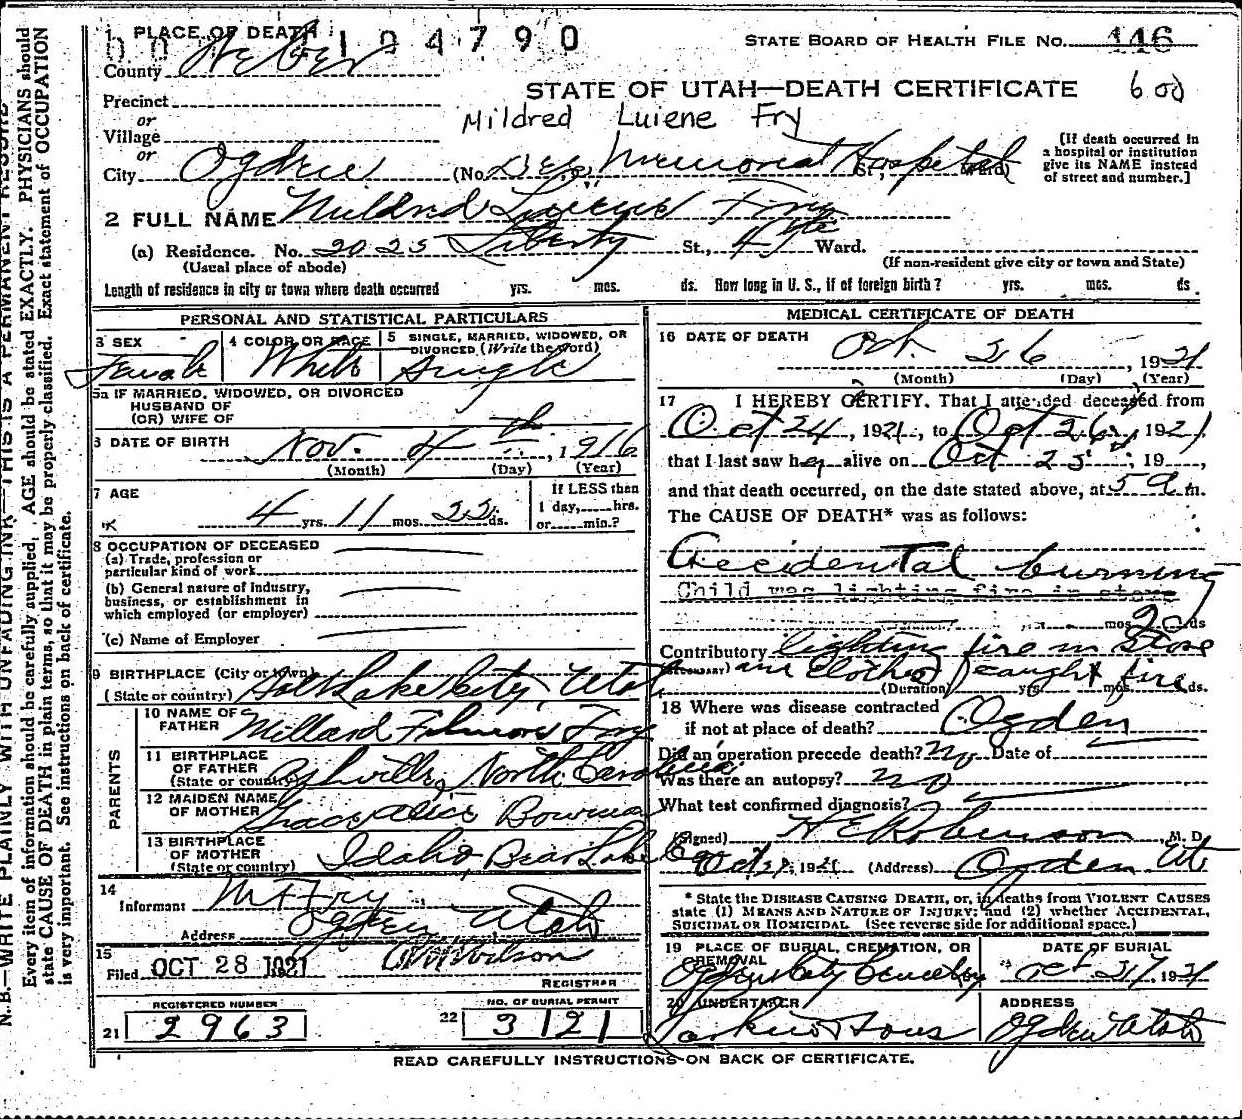 1. PLACE OF DEATH
194790
STATE BOARD OF HEALTH FILE No. 446
County Weber
STATE OF UTAH—DEATH CERTIFICATE
600
Precinct
or
Village
or
Mildred Luiene Fry
City Ogden (No. Dee Memorial Hospital St., Ward)
(If death occurred in
a hospital or institution
give its NAME instead
of street and number.]
2 FULL NAME Mildred Luiene Fry
(a) Residence. No. 2025 Liberty St., 4th Ward.
(Usual place of abode)
(If non-resident give city or town and State)
Length of residence in city or town where death occurred yrs. mos. ds. How long in U. S., if of foreign birth? yrs. mos. ds
PERSONAL AND STATISTICAL PARTICULARS
3 SEX
Female
4 COLOR OR RACE
White
5 SINGLE, MARRIED, WIDOWED, OR
DIVORCED (Write the word)
Single
5a IF MARRIED, WIDOWED, OR DIVORCED
HUSBAND OF
(OR) WIFE OF
6 DATE OF BIRTH Nov. 4th, 1916
(Month) (Day) (Year)
7 AGE
4 yrs. 11 mos. 22 ds.
If LESS than
1 day, hrs.
or min.?
8 OCCUPATION OF DECEASED
(a) Trade, profession or
particular kind of work
(b) General nature of industry,
business, or establishment in
which employed (or employer)
(c) Name of Employer
9 BIRTHPLACE (City or town)
(State or country) Salt Lake City, Utah
PARENTS
10 NAME OF
FATHER Millard Filmore Fry
11 BIRTHPLACE
OF FATHER
(State or country) Ashville, North Carolina
12 MAIDEN NAME
OF MOTHER Grace Alice Bowman
13 BIRTHPLACE
OF MOTHER
(State or country) Idaho, Bear Lake Co
14
Informant M F Fry
Address Ogden Utah
15
Filed OCT 28 1921
Wilson
REGISTRAR
REGISTERED NUMBER
21 2963
NO. OF BURIAL PERMIT
22 3121
MEDICAL CERTIFICATE OF DEATH
16 DATE OF DEATH
Oct. 26, 1921
(Month) (Day) (Year)
17 I HEREBY CERTIFY, That I attended deceased from
Oct 24, 1921, to Oct 26, 1921,
that I last saw her alive on Oct 25, 19 ,
and that death occurred, on the date stated above, at 5 a m.
The CAUSE OF DEATH* was as follows:
Accidental burning
Child was lighting fire in stove
mos 20 ds
Contributory lighting fire in Stove
(SECONDARY) and clothes caught fire
(Duration) yrs. mos. ds.
18 Where was disease contracted
if not at place of death? Ogden
Did an operation precede death? No Date of
Was there an autopsy? no
What test confirmed diagnosis?
(Signed) H E Robinson, M. D.
Oct 27, 1921 (Address) Ogden Ut
* State the DISEASE CAUSING DEATH, or, in deaths from VIOLENT CAUSES
state (1) MEANS AND NATURE OF INJURY; and (2) whether ACCIDENTAL,
SUICIDAL OR HOMICIDAL. (See reverse side for additional space.)
19 PLACE OF BURIAL, CREMATION, OR
REMOVAL
Ogden City Cemetery
DATE OF BURIAL
Oct 27, 1921
20 UNDERTAKER
Larkin & Sons
ADDRESS
Ogden Utah
READ CAREFULLY INSTRUCTIONS ON BACK OF CERTIFICATE.
N. B.—WRITE PLAINLY WITH UNFADING INK—THIS IS A PERMANENT RECORD
Every item of information should be carefully supplied. AGE should be stated EXACTLY. PHYSICIANS should
state CAUSE OF DEATH in plain terms, so that it may be properly classified. Exact statement of OCCUPATION
is very important. See instructions on back of certificate.